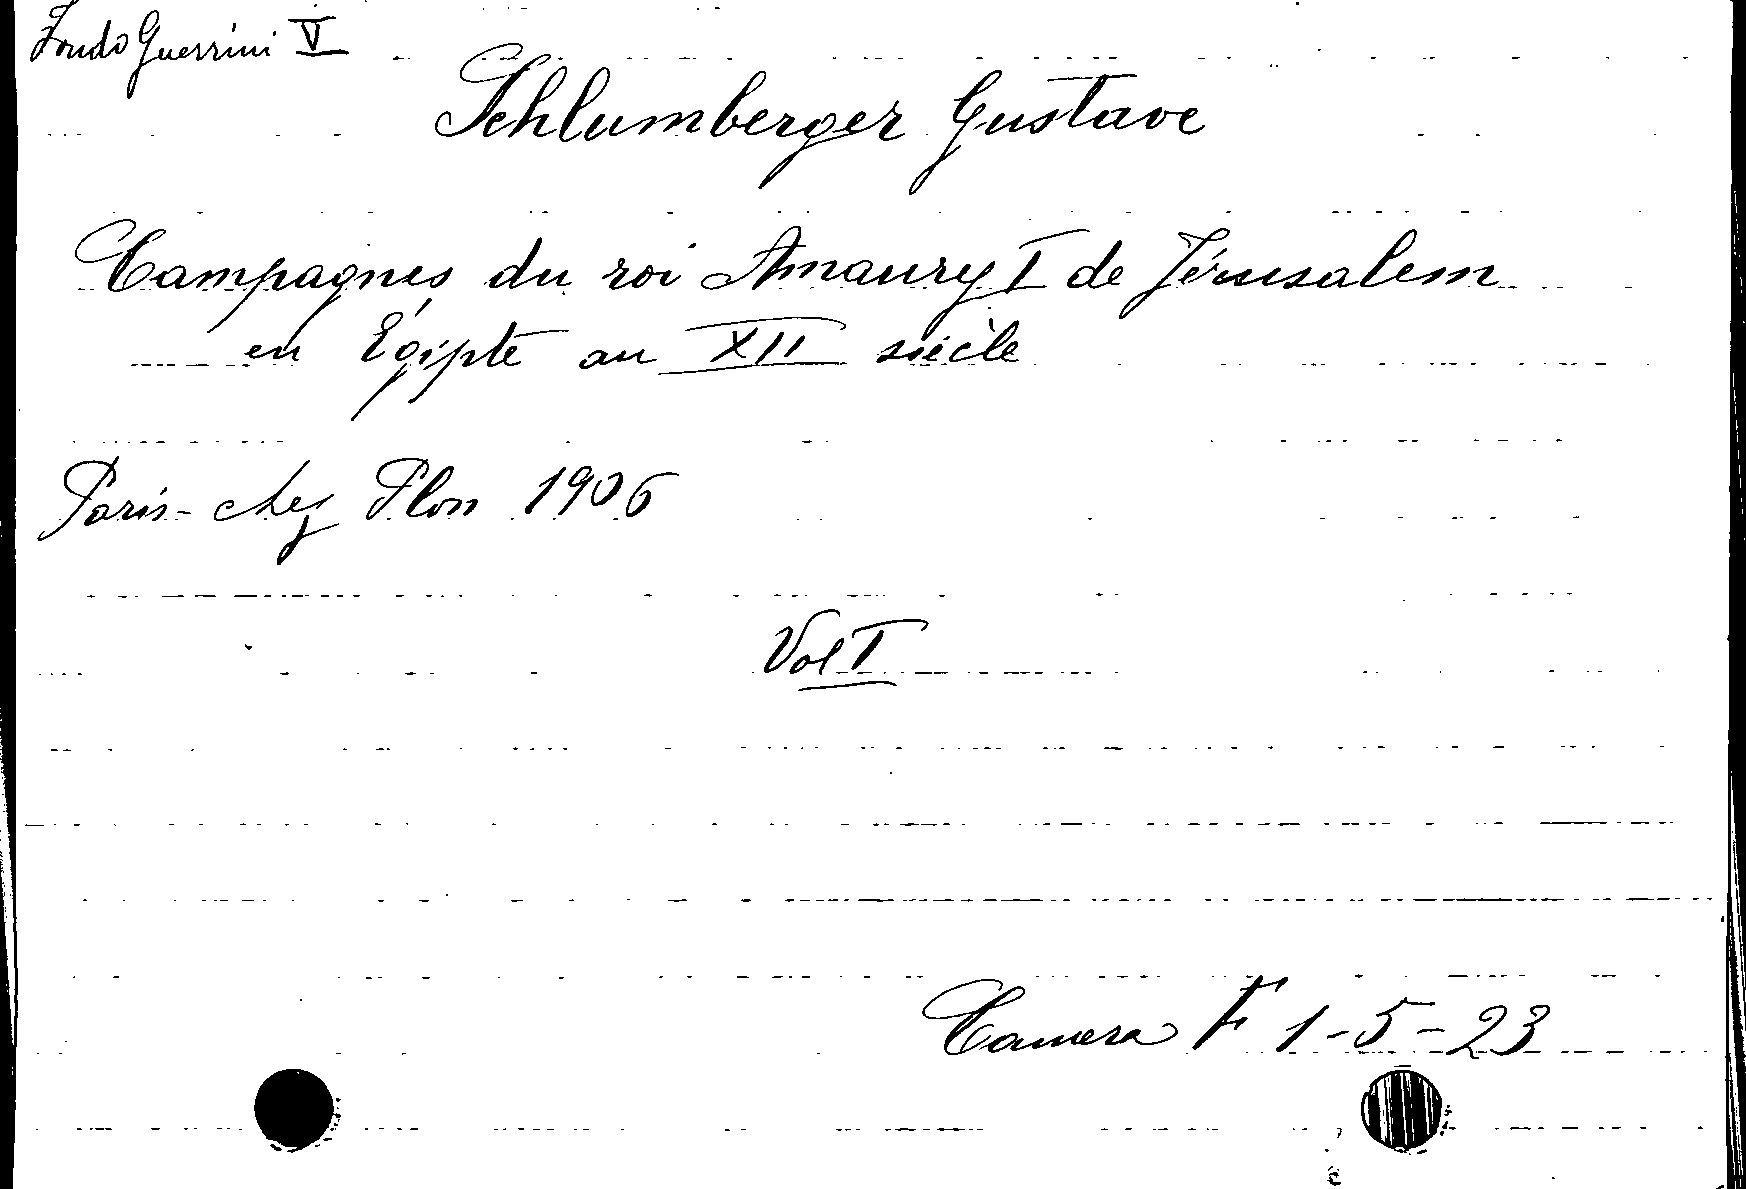 Fondo Guerrini V
Schlumberger Gustave
Campagnes du roi Amaury I de Jérusalem
en Égipte au XII siècle
Paris - chez Plon 1906
Vol I
Camera F 1-5-23